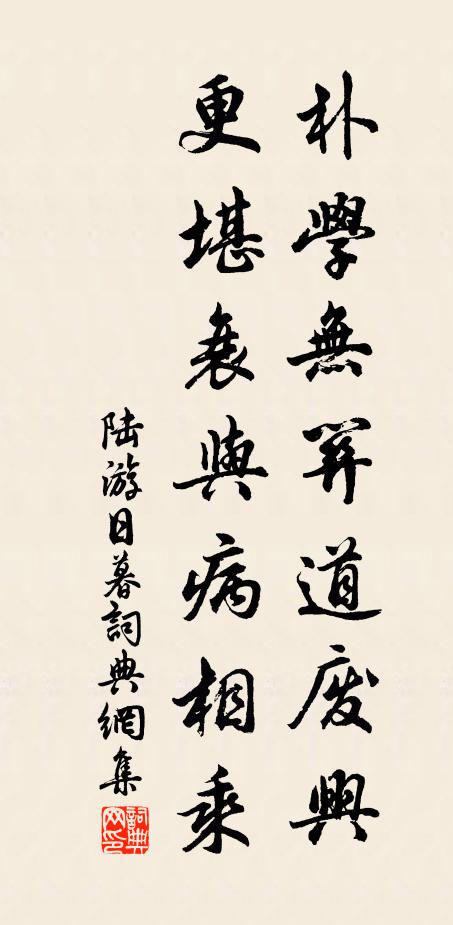 朴學無關道廢興
更堪衰與病相乘
陆游日暮詞典網集
詞典网印